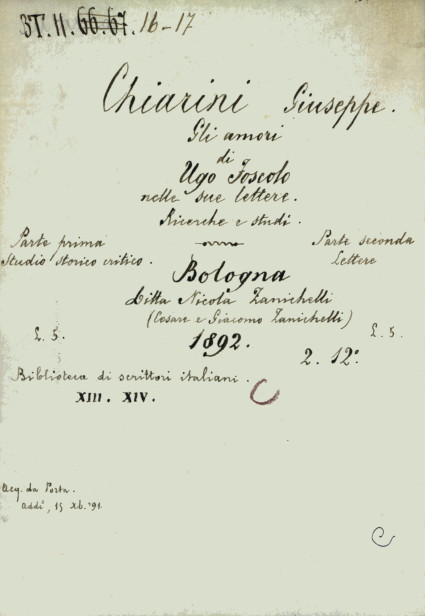 3T. II. 66.67. 16-17
Chiarini Giuseppe.
Gli amori
di
Ugo Foscolo
nelle sue lettere.
Ricerche e studi.
Parte prima
Studio storico critico.
Parte seconda
Lettere
Bologna
Ditta Nicola Zanichelli
(Cesare e Giacomo Zanichelli)
L. 5.
1892.
L. 5.
2. 12°.
Biblioteca di scrittori italiani.
XIII. XIV.
Acq. da Porta.
addi', 15 Xb. '91.